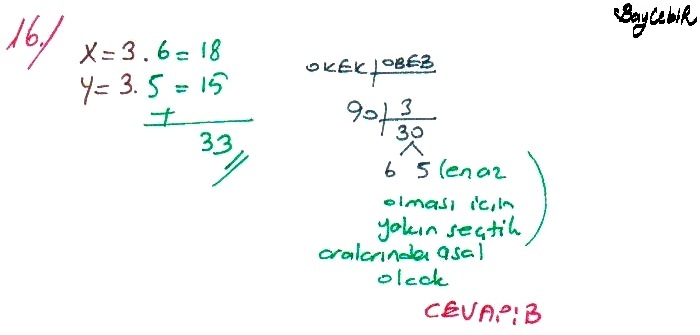 Baycebir
16.)
x = 3 . 6 = 18
y = 3 . 5 = 15
+
33
OKEK | OBEB
90 | 3
30
6 5 (en az
olması için
yakın seçtik)
aralarında asal
olcak
CEVAP: B